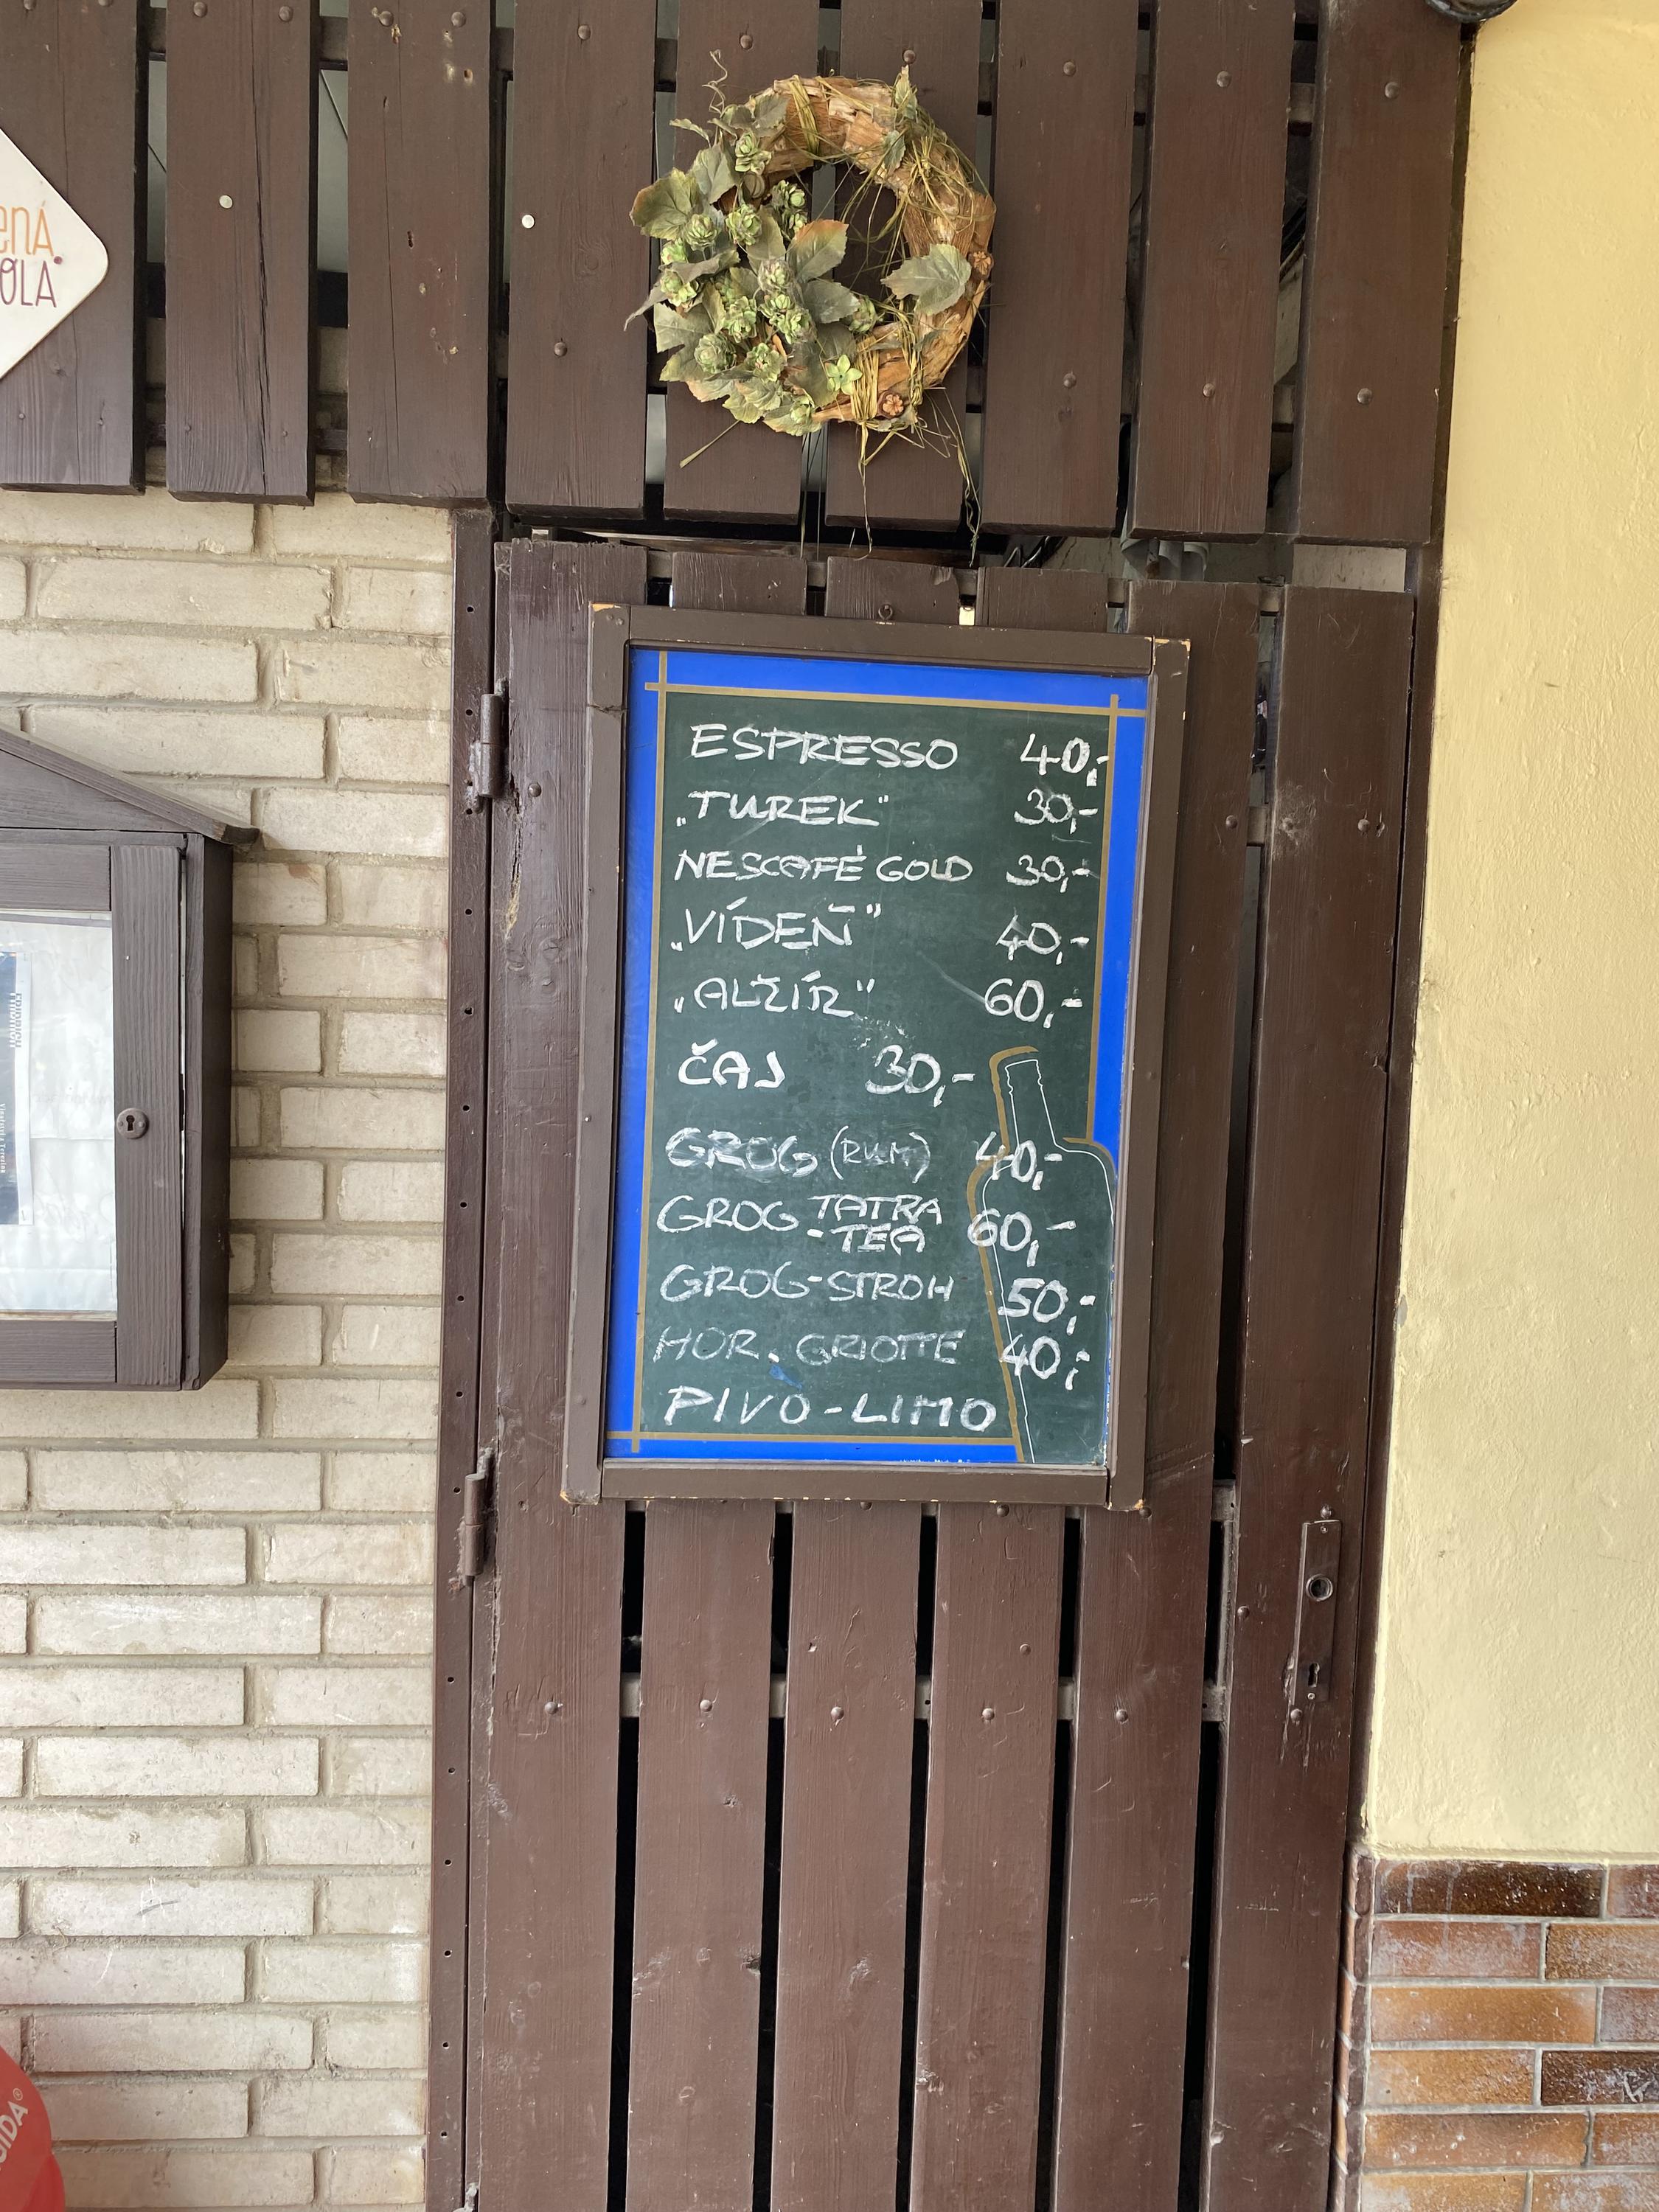 ENÁ
OLA
ESPRESSO 40,-
„TUREK“ 30,-
NESCAFÉ GOLD 30,-
„VÍDEŇ“ 40,-
„ALŽÍR“ 60,-
ČAJ 30,-
GROG (RUM) 40,-
GROG TATRA
-TEA 60,-
GROG-STROH 50,-
HOR. GRIOTTE 40,-
PIVO-LIMO